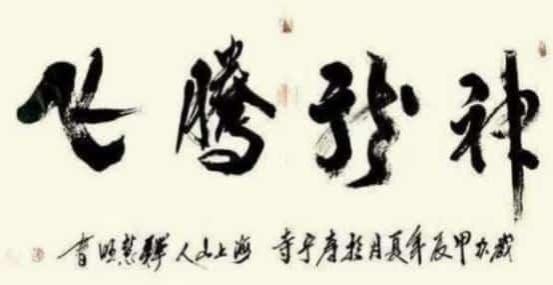 神龍騰飞
歲次甲辰年夏月於寺 海上山人釋慧明書